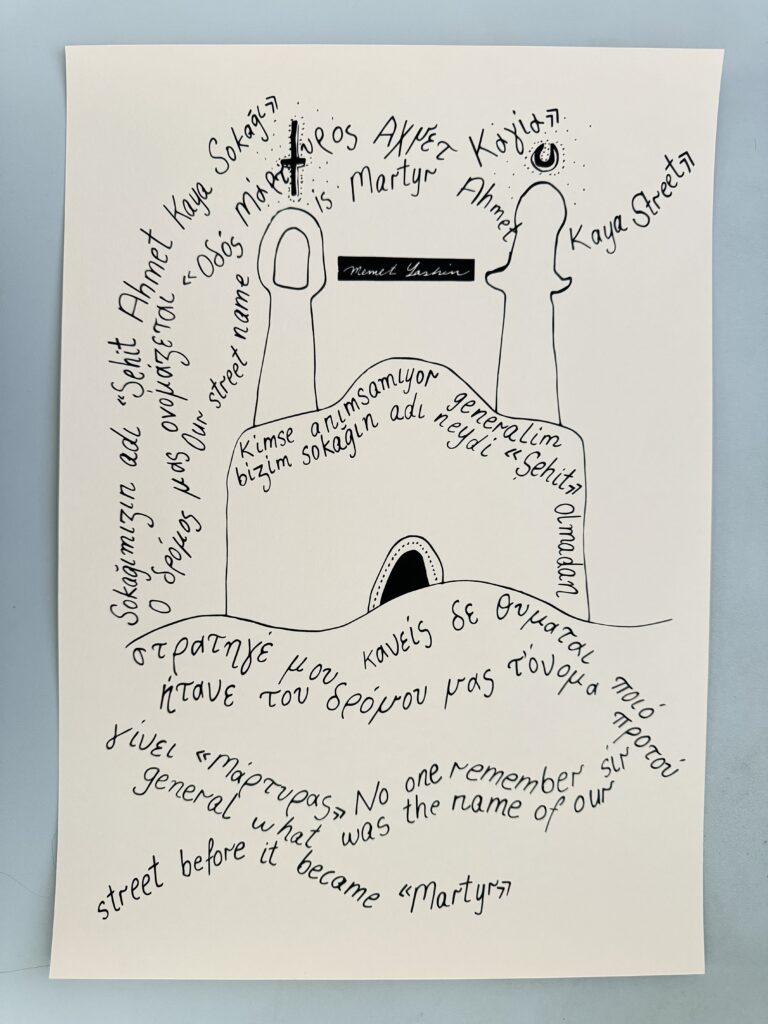 Sokağımızın adı "Şehit Ahmet Kaya Sokağı»
Ο δρόμος μας ονομάζεται "Οδός Μάρτυρος Αχμέτ Καγιά»
Our street name is Martyr Ahmet Kaya Street»
Memet Yashin
Kimse anımsamıyor generalim
bizim sokağın adı neydi «Şehit» olmadan
στρατηγέ μου κανείς δε θυμαται ποιό
ήτανε του δρόμου μας τ'όνομα προτού
γίνει «Μάρτυρας» No one remember sir
general what was the name of our
street before it became «Martyr»